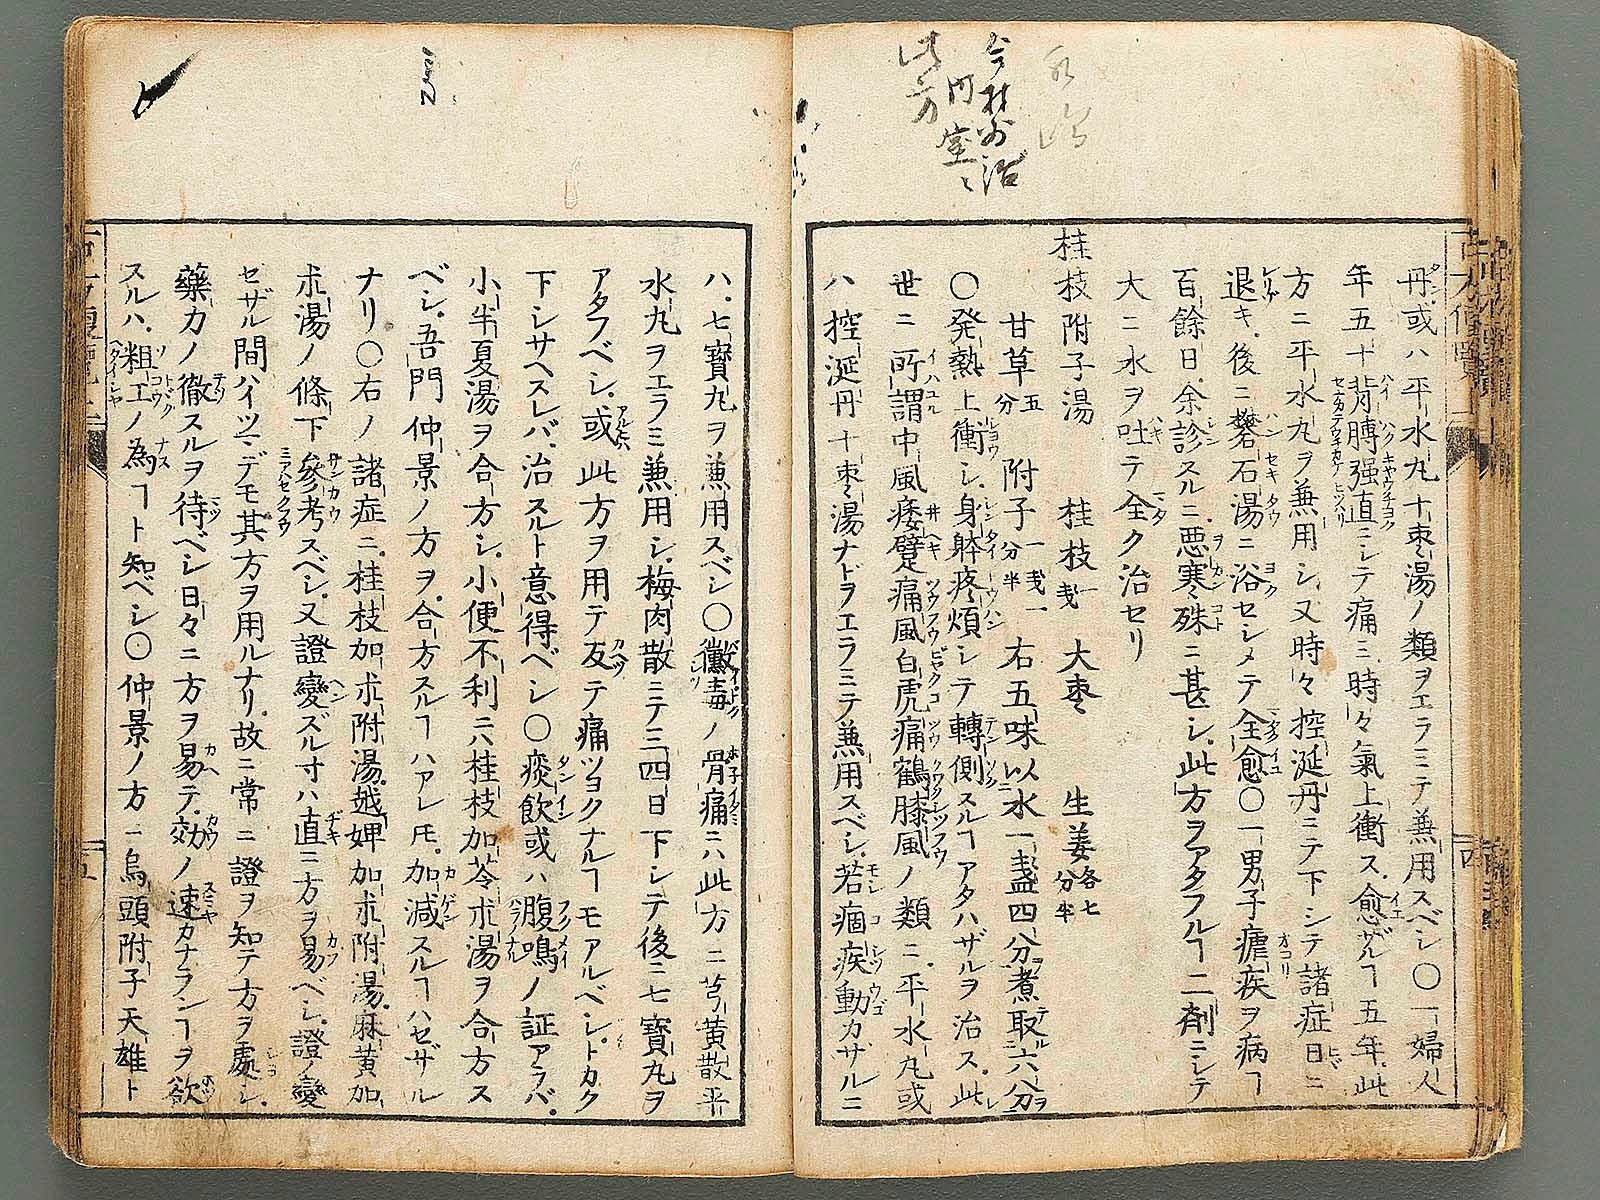 丹或ハ平水丸十棗湯ノ類ヲエラミテ兼用スベシ〇一婦人
年五十背膊强直ニシテ痛ミ時々氣上衝ス愈ザルヿ五年此
方ニ平水丸ヲ兼用シ又時々控涎丹ニテ下シテ諸症日ニ
退キ後ニ礬石湯ニ浴セシメテ全愈〇一男子瘧疾ヲ病ヿ
百餘日余診スルニ悪寒殊ニ甚シ此方ヲアタフルヿ二劑ニシテ
大ニ水ヲ吐テ全ク治セリ
桂枝附子湯 桂枝一戔 大棗 生姜各七分半
甘草五分 附子一戔一分半 右五味以水一盞四分煮取六分
〇発熱上衝シ身躰疼煩シテ轉側スルヿアタハザルヲ治ス此レ
世ニ所謂中風痿躄痛風白虎痛鶴膝風ノ類ニ平水丸或
ハ控涎丹十棗湯ナドヲエラミテ兼用スベシ若痼疾動カザルニ
ハ七寶丸ヲ兼用スベシ〇黴毒ノ骨痛ニハ此方ニ芎黄散平
水丸ヲエラミ兼用シ梅肉散ニテ三四日下シテ後ニ七寶丸ヲ
アタフベシ或此方ヲ用テ反テ痛ツヨクナルヿモアルベシトカク
下シサヘスレバ治スルト意得ベシ〇痰飲或ハ腹鳴ノ証アラバ
小半夏湯ヲ合方シ小便不利ニハ桂枝加苓朮湯ヲ合方ス
ベシ吾門仲景ノ方ヲ合方スルヿハアレ𪜈加減スルヿハセザル
ナリ〇右ノ諸症ニ桂枝加朮附湯越婢加朮附湯麻黄加
朮湯ノ條下參考スベシ又證變ズル寸ハ直ニ方ヲ易ベシ證ノ變
セザル間ハイツマデモ其方ヲ用ルナリ故ニ常ニ證ヲ知テ方ヲ處シ
藥力ノ徹スルヲ待ベシ日々ニ方ヲ易テ効ノ速カナランヿヲ欲
スルハ粗工ノ為ヿト知ベシ〇仲景ノ方一烏頭附子天雄ト